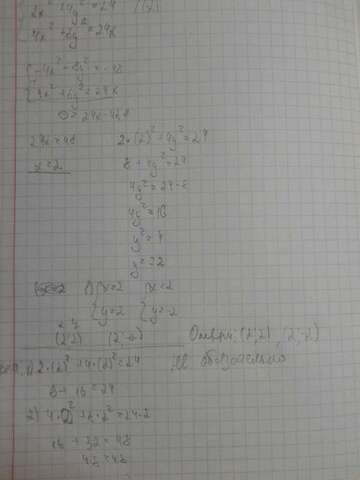 2x² + 4y² = 24
4x² + 8y² = 24x
{-4x² - 8y² = -48
{4x² + 8y² = 24x
0 = 24x - 48
24x = 48
x = 2
2·(2)² + 4y² = 24
8 + 4y² = 24
4y² = 24 - 8
4y² = 16
y² = 4
y = ±2
{x = 2 {x = 2
{y = 2 {y = -2
(2;2) (2;-2)
Ответ: (2;2), (2;-2)
1) 2·(2)² + 4·(2)² = 24
8 + 16 = 24
2) 4·2² + 8·2² = 24·2
16 + 32 = 48
48 = 48